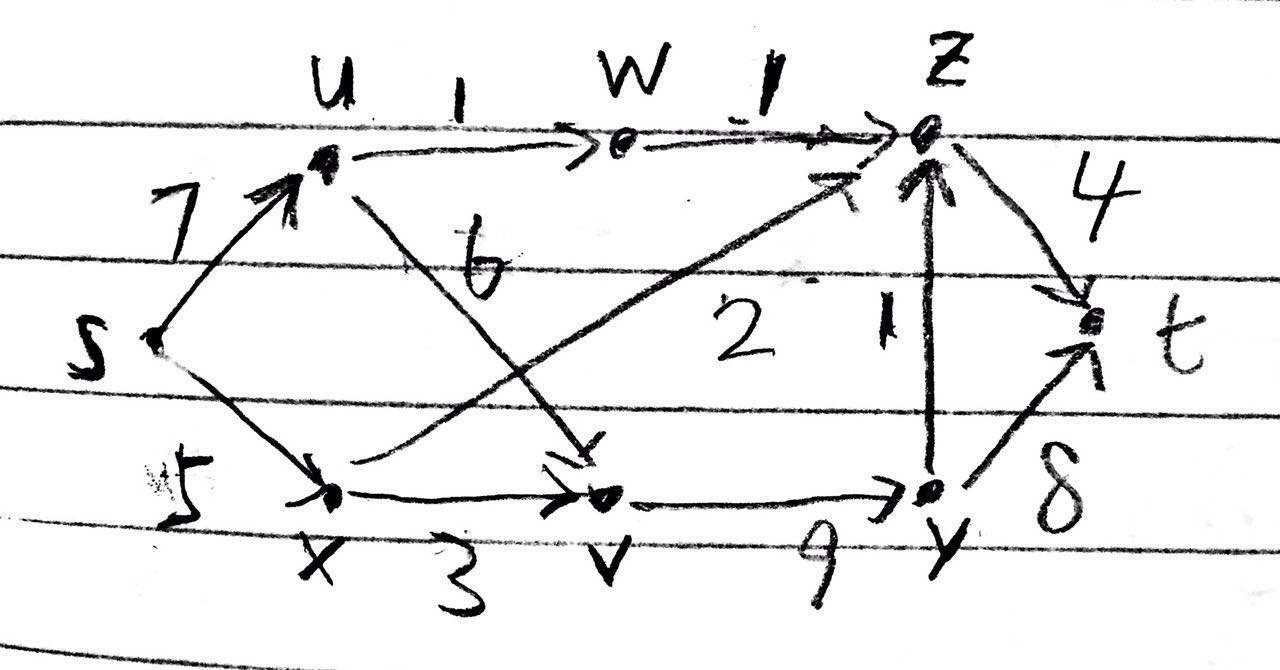 u 1 w 1 z
7 6 4
s 2 1 t
5 x 3 v 9 y 8